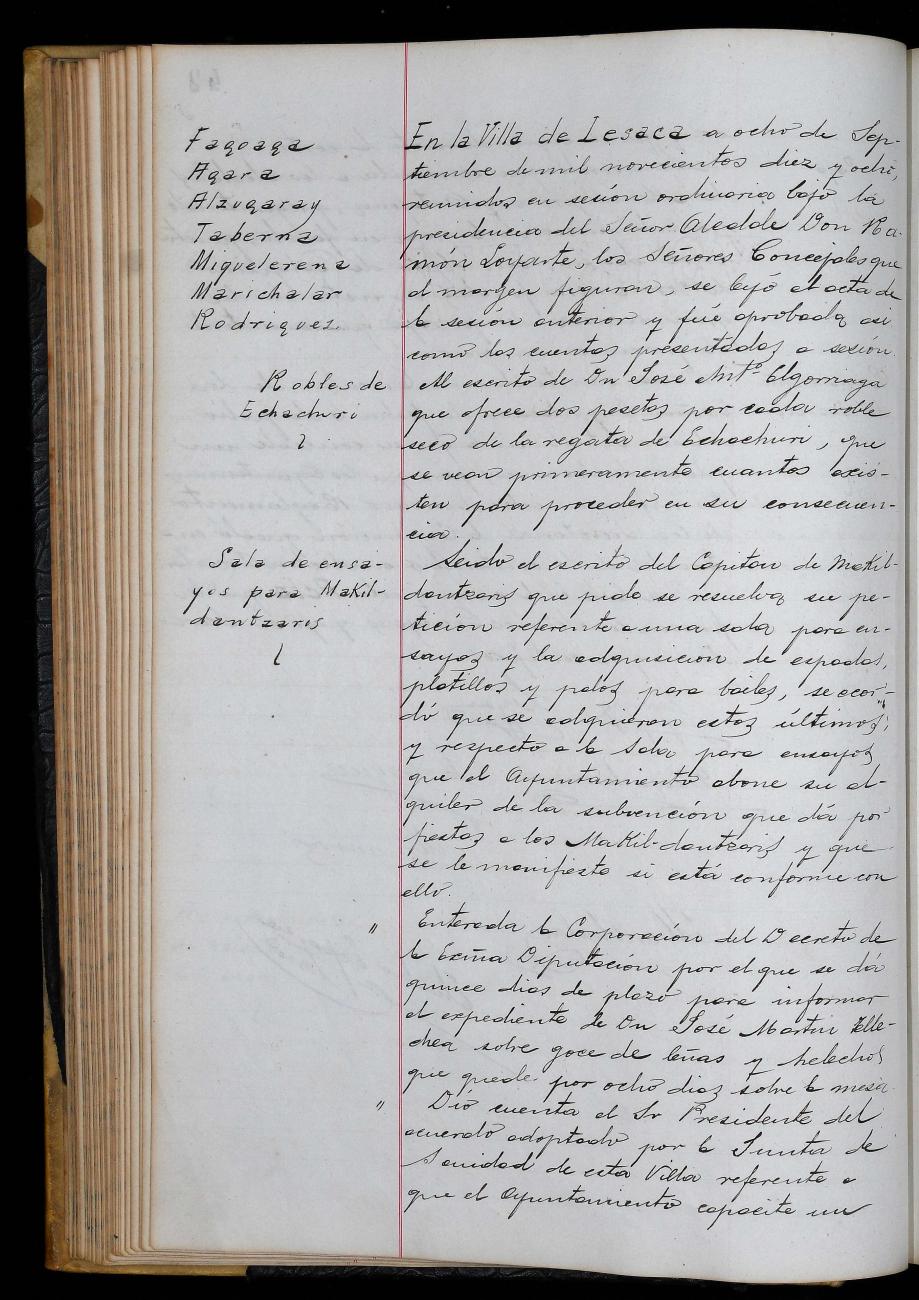 Fagoaga
Agara
Alzugaray
Taberna
Miguelerena
Marichalar
Rodriguez
En la Villa de Lesaca a ocho de Sep-
tiembre de mil novecientos diez y ocho,
reunidos en sesión ordinaria bajo la
presidencia del Señor Alcalde Don Ra-
món Loyarte, los Señores Concejales que
al margen figuran, se leyó el acta de
la sesión anterior y fué aprobada asi
como las cuentas presentadas a sesión.
Robles de
Echachuri
Al escrito de Dn José Antº Elgorriaga
que ofrece dos pesetas por cada roble
seco de la regata de Echachuri, que
se vean primeramente cuantos exis-
ten para proceder en su consecuen-
cia.
Sala de ensa-
yos para Makil-
dantzaris
Leido el escrito del Capitan de Makil-
dantzaris que pide se resuelva su pe-
tición referente a una sala para en-
sayos y la adquisicion de espadas,
platillos y palos para bailes, se acor-
dó que se adquieran estos últimos,
y respecto a la Sala para ensayos
que el Ayuntamiento abone su al-
quiler de la subvención que dá por
fiestas a los Makil-dantzaris y que
se le manifieste si está conforme con
ello.
" Enterada la Corporación del Decreto de
la Exma Diputación por el que se dá
quince dias de plazo para informar
el expediente de Dn José Martin Telle-
chea sobre goce de leñas y helechos
que quede por ocho dias sobre la mesa.
" Dió cuenta el Sr Presidente del
acuerdo adoptado por la Junta de
Sanidad de esta Villa referente a
que el Ayuntamiento capacite un